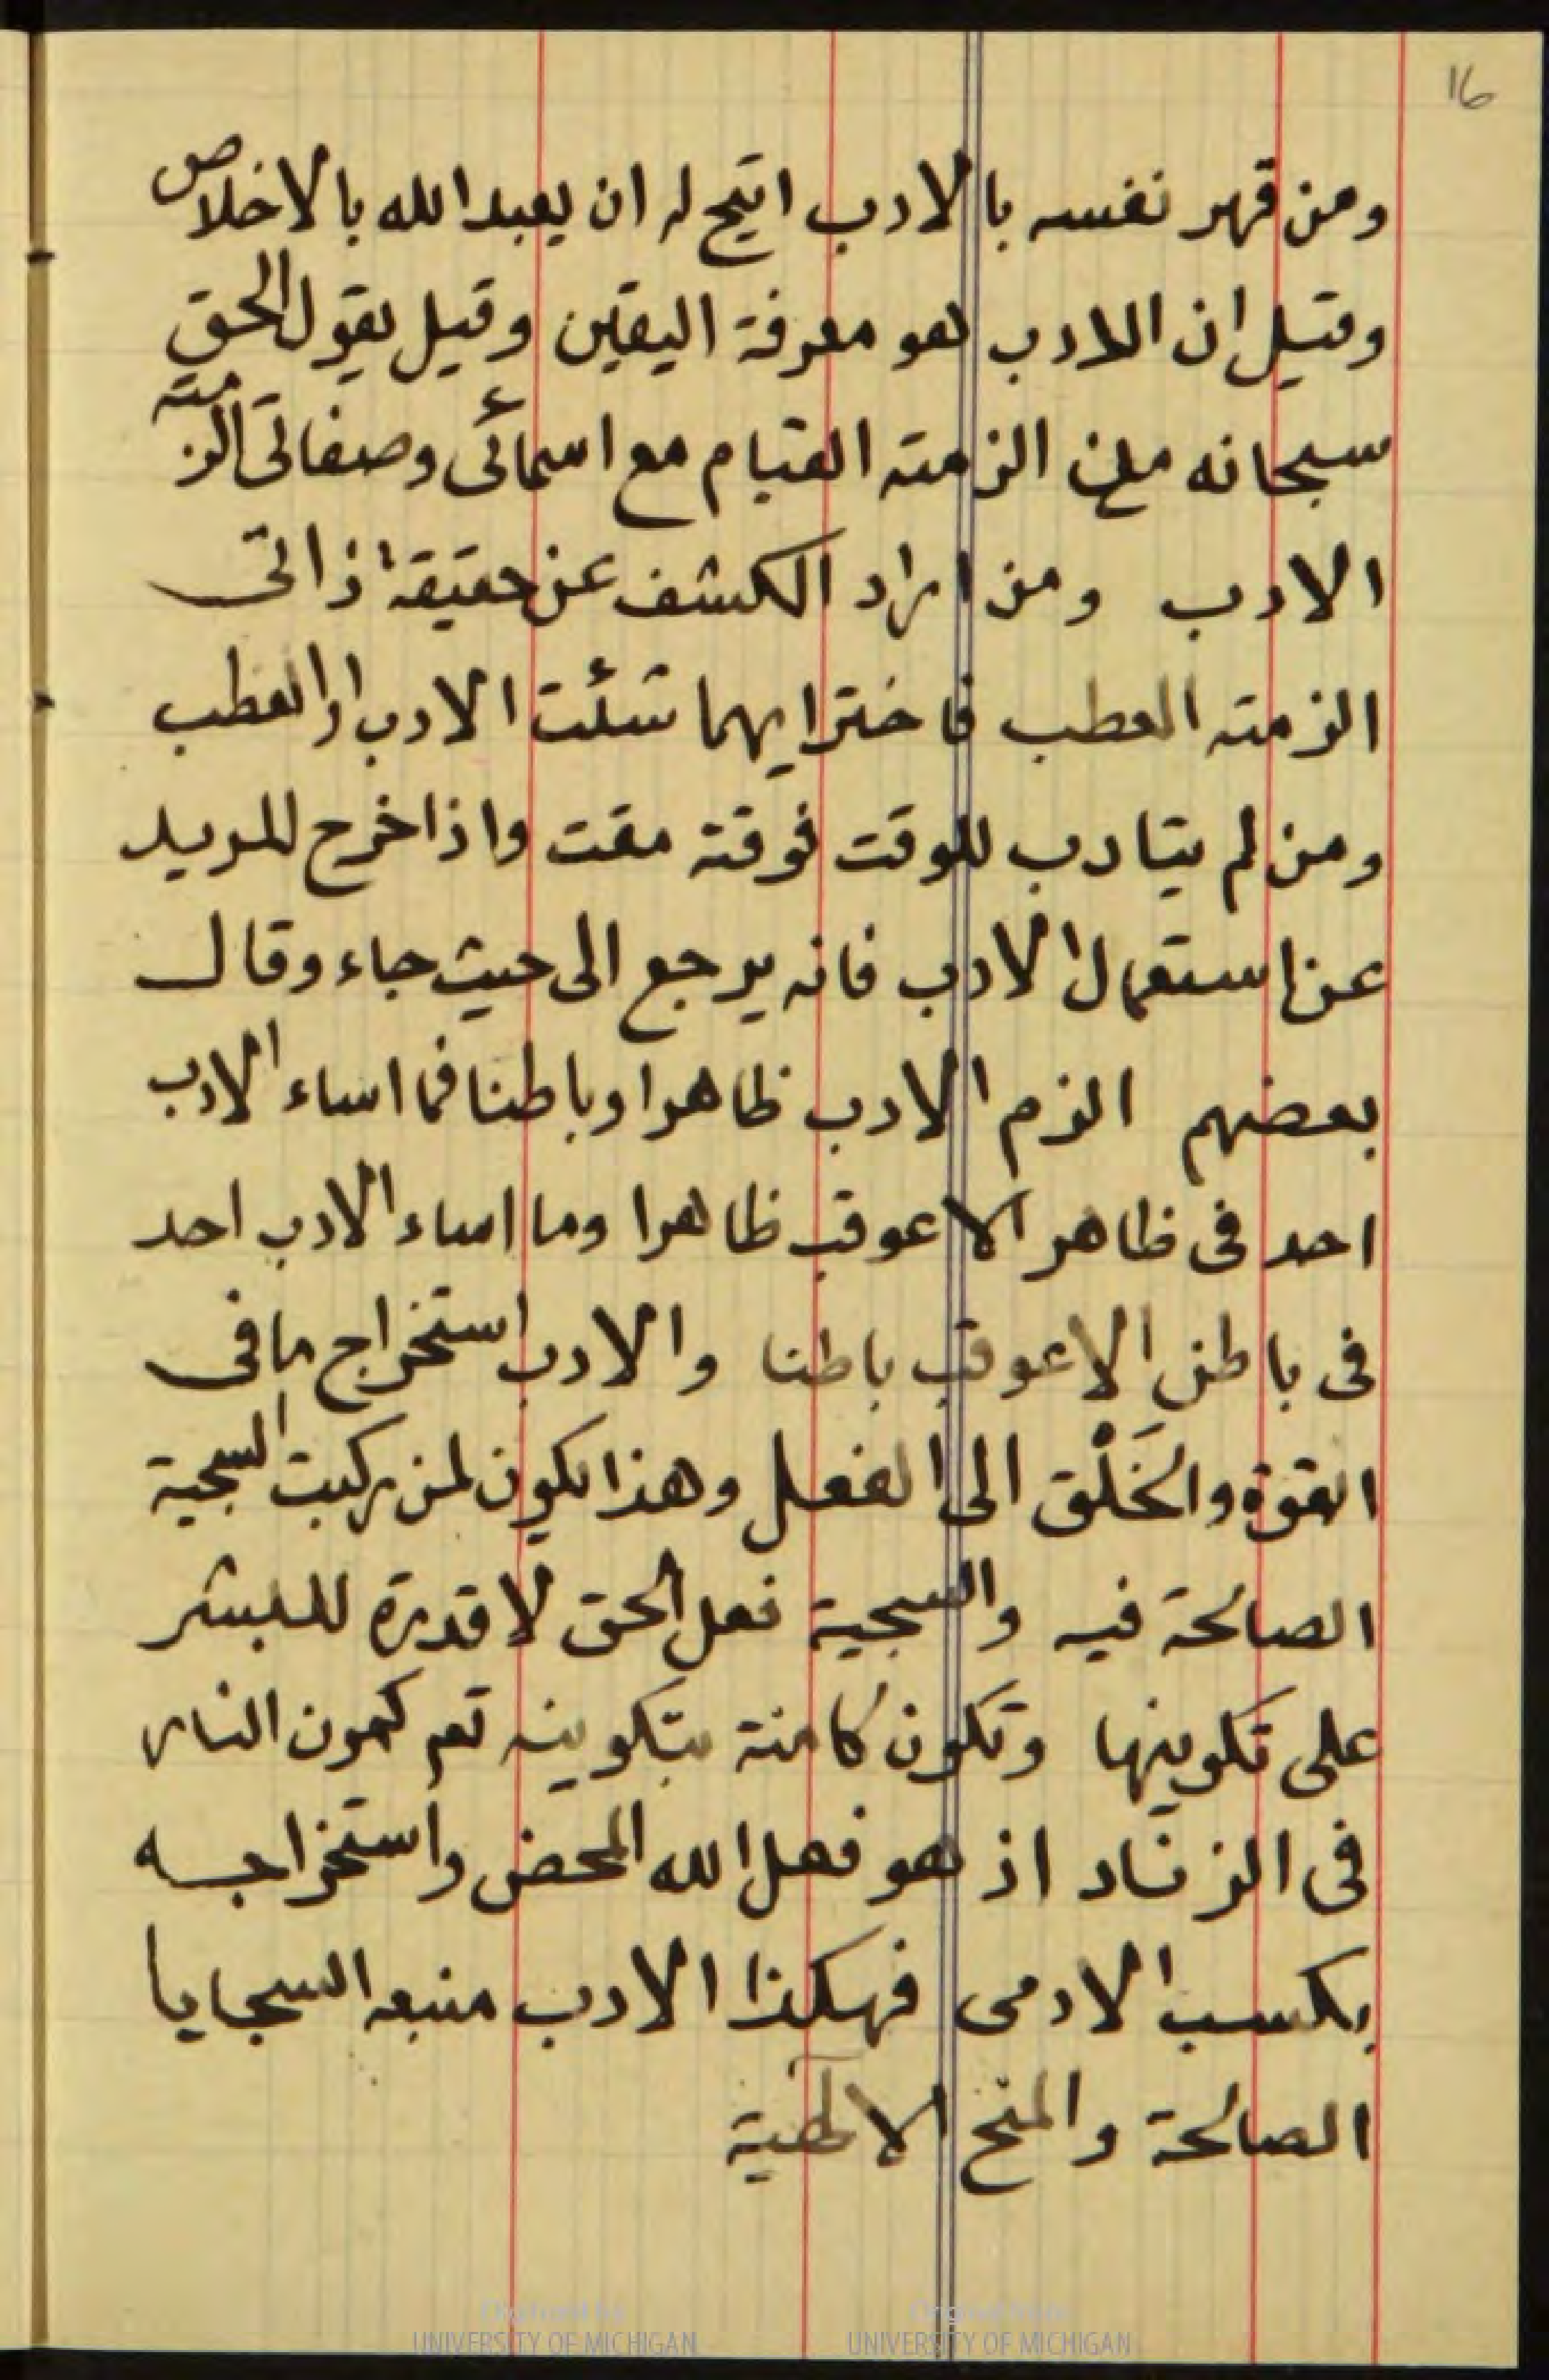 16
ومن قهر نفسه بالادب اتيح له ان يعبد الله بالاخلاص
وقيل ان الادب هو معرفة اليقين وقيل يقول الحق
سبحانه من الزمته القيام مع اسمائى وصفاتى الزمته
الادب ومن اراد الكشف عن حقيقة ذاتى
الزمته العطب فاختر ايهما شئت الادب او العطب
ومن لم يتادب للوقت فوقته مقت واذا خرج المريد
عن استعمال الادب فانه يرجع الى حيث جاء وقال
بعضهم الزم الادب ظاهرا وباطنا فما اساء الادب
احد فى ظاهر الا عوقب ظاهرا وما اساء الادب احد
فى باطن الا عوقب باطنا والادب استخراج ما فى
القوة والخَلْق الى الفعل وهذا يكون لمن ركبت السجية
الصالحة فيه والسجية فعل الحق لا قدرة للبشر
على تكوينها وتكون كامنة بتكوينه تع كمون النار
فى الزناد اذ هو فعل الله المحض واستخراجه
بكسب الادمى فهكذا الادب منبعه السجايا
الصالحة والمنح الالهية
UNIVERSITY OF MICHIGAN
Original from
UNIVERSITY OF MICHIGAN